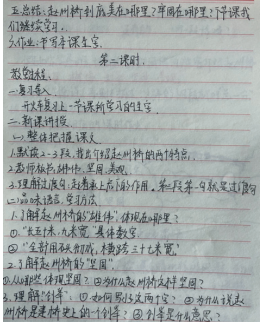 五.总结:赵州桥到底美在哪里?牢固在哪里?下节课我
们继续学习。
六.作业:书写本课生字
第二课时
教学过程:
一.复习导入
开火车复习上一节课所学习的生字
二.新课讲授
(一)整体把握课文
1.默读2-3段,找出介绍赵州桥的两个特点。
2.教师板书:雄伟、坚固、美观。
3.理解过渡句:起着承上启下的作用。第三段第一句就是过渡句
(二)品味语言,学习方法
1.了解赵州桥的"雄伟"体现在哪里?
①."长五十米,九米宽"具体数字
②."全部用石头砌成,横跨三十七米宽"
2.了解赵州桥的"坚固"。
①.从哪些体现坚固?②为什么赵州桥这样坚固?
3.理解"创举":①如何写好这两个字?②为什么说赵
州桥是建桥史上的一个创举?③创举是什么意思?